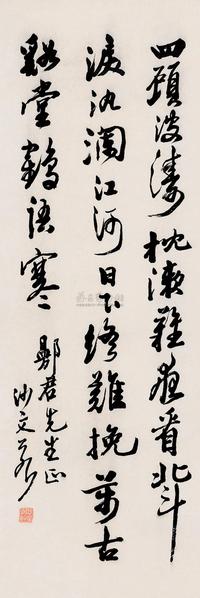 四顧波濤枕漱難夜看北斗
淚汍瀾江河日下終難挽萬古
谿堂鶴語寒
鄭君先生正
沙文若